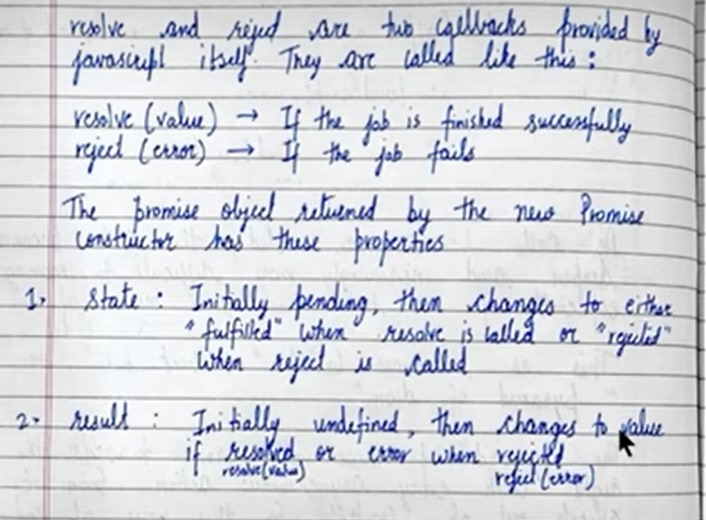 resolve and reject are two callbacks provided by
javascript itself. They are called like this :
resolve (value) → If the job is finished successfully
reject (error) → If the job fails
The promise object returned by the new Promise
constructor has these properties
1. state : Initially pending, then changes to either
"fulfilled" when resolve is called or "rejected"
when reject is called
2. result : Initially undefined, then changes to value
if resolved or error when rejected
resolve(value) reject (error)